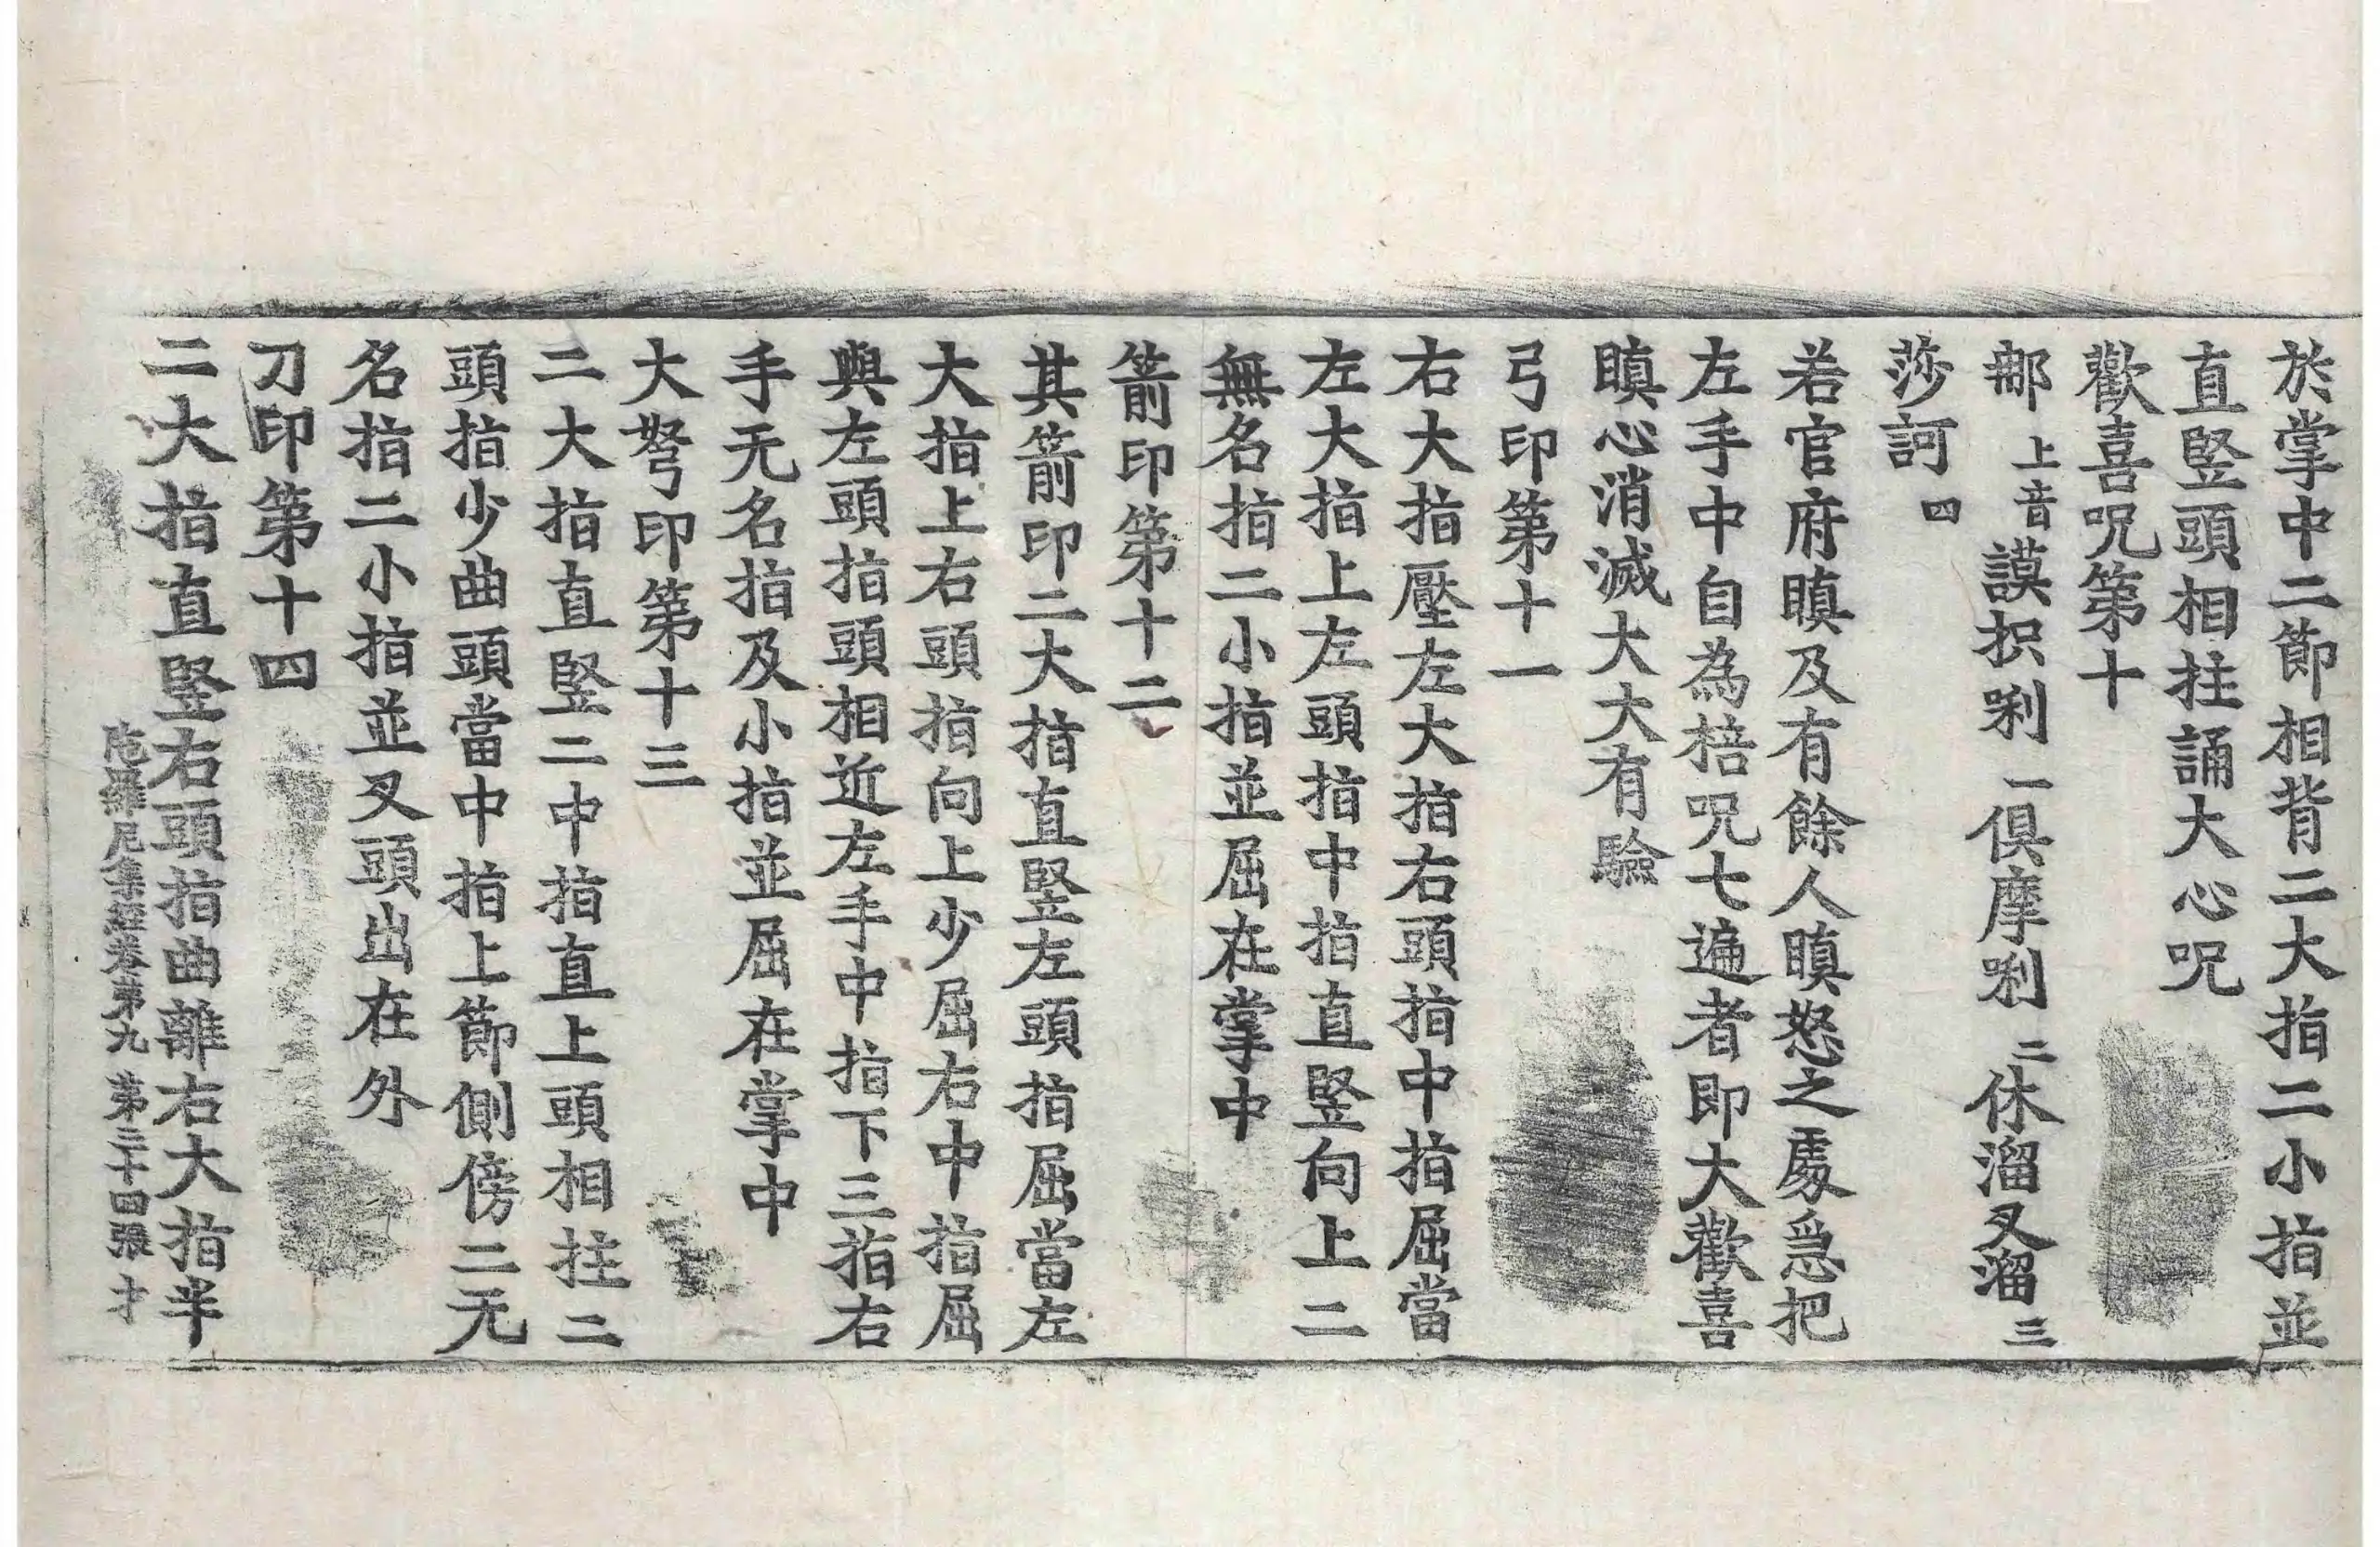 於掌中二節相背二大指二小指並
直竪頭相拄誦大心呪
歡喜呪第十
那上音謨抧唎一俱摩唎二休溜叉溜三
莎訶四
若官府瞋及有餘人瞋怒之處急把
左手中自為棓呪七遍者即大歡喜
瞋心消滅大大有驗
弓印第十一
右大指壓左大指右頭指中指屈當
左大指上左頭指中指直竪向上二
無名指二小指並屈在掌中
箭印第十二
其箭印二大指直竪左頭指屈當左
大指上右頭指向上少屈右中指屈
與左頭指頭相近左手中指下三指右
手无名指及小指並屈在掌中
大弩印第十三
二大指直竪二中指直上頭相拄二
頭指少曲頭當中指上節側傍二无
名指二小指並叉頭出在外
刀印第十四
二大指直竪右頭指曲離右大指半
陁羅尼集經卷第九 第三十四張 才